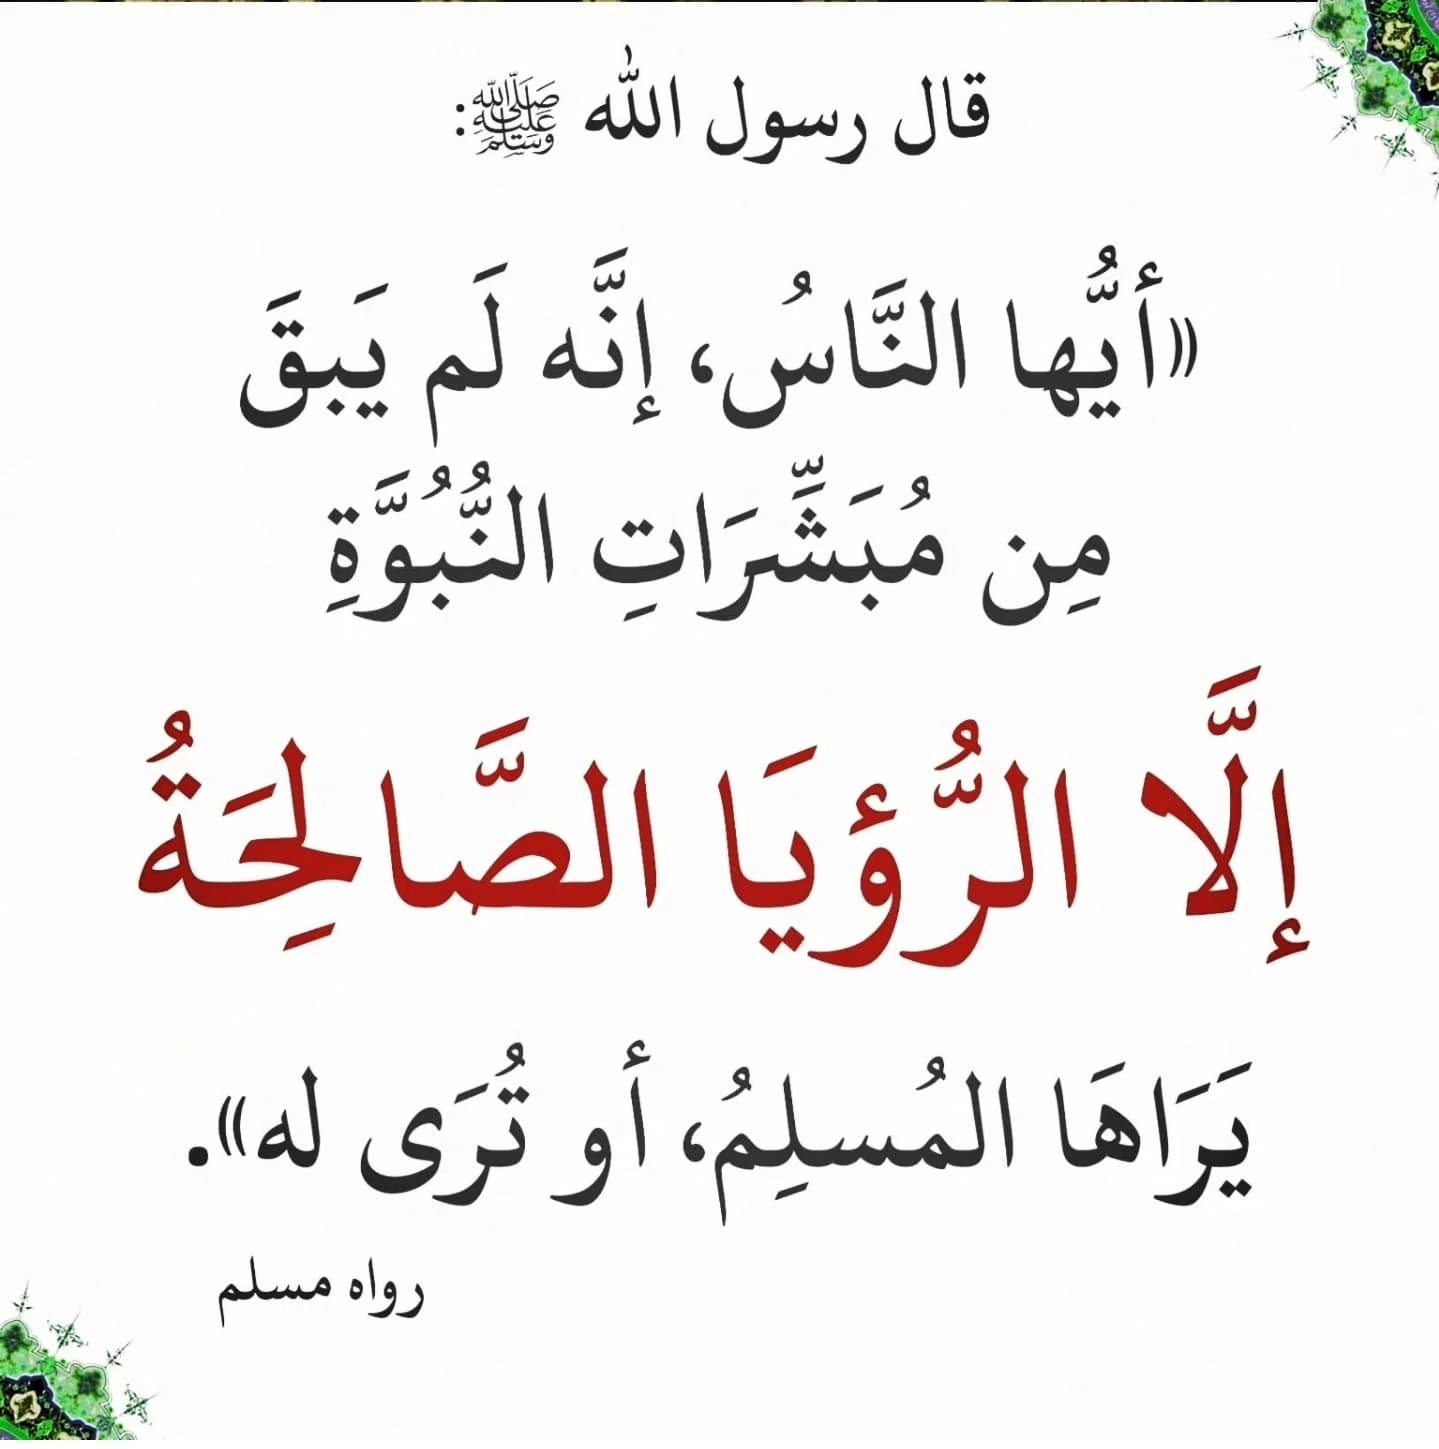 قال رسول الله ﷺ:
«أيُّها النَّاسُ، إنَّه لَم يَبقَ
مِن مُبَشِّرَاتِ النُّبُوَّةِ
إلَّا الرُّؤيَا الصَّالِحَةُ
يَرَاهَا المُسلِمُ، أو تُرَى له».
رواه مسلم